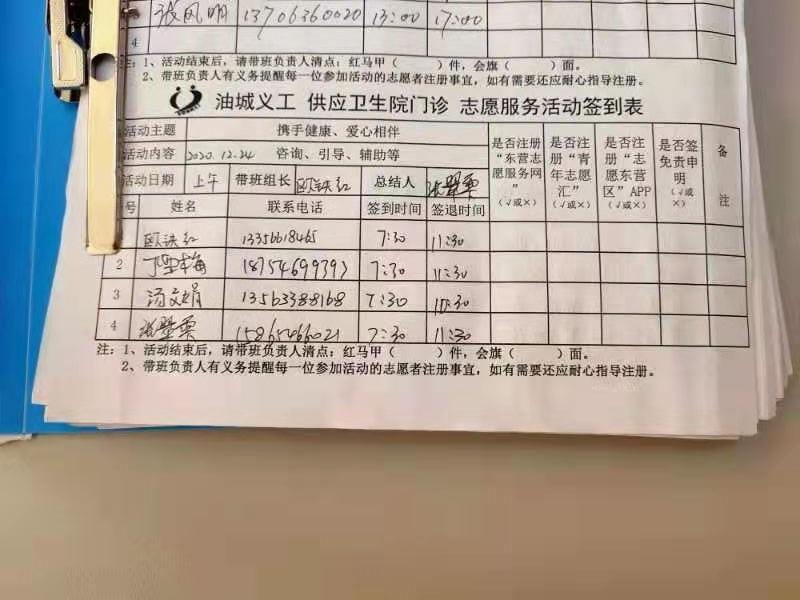 张风明 13706360020 13:00 17:00
4
注：1、活动结束后，请带班负责人清点：红马甲（ ）件，会旗（ ）面。
2、带班负责人有义务提醒每一位参加活动的志愿者注册事宜，如有需要还应耐心指导注册。
油城义工 供应卫生院门诊 志愿服务活动签到表
活动主题 携手健康、爱心相伴 是否注册“东营志愿服务网”（√或×） 是否注册“青年志愿汇”（√或×） 是否注册“志愿东营区”APP（√或×） 是否签免责申明（√或×） 备注
活动内容 2020.12.24 咨询、引导、辅助等
活动日期 上午 带班组长 欧铁红 总结人
号 姓名 联系电话 签到时间 签退时间
欧铁红 13356618465 7:30 11:30
2 18754699393 7:30 11:30
3 汤文娟 13563388168 7:30 11:30
4 15865466021 7:30 11:30
注：1、活动结束后，请带班负责人清点：红马甲（ ）件，会旗（ ）面。
2、带班负责人有义务提醒每一位参加活动的志愿者注册事宜，如有需要还应耐心指导注册。